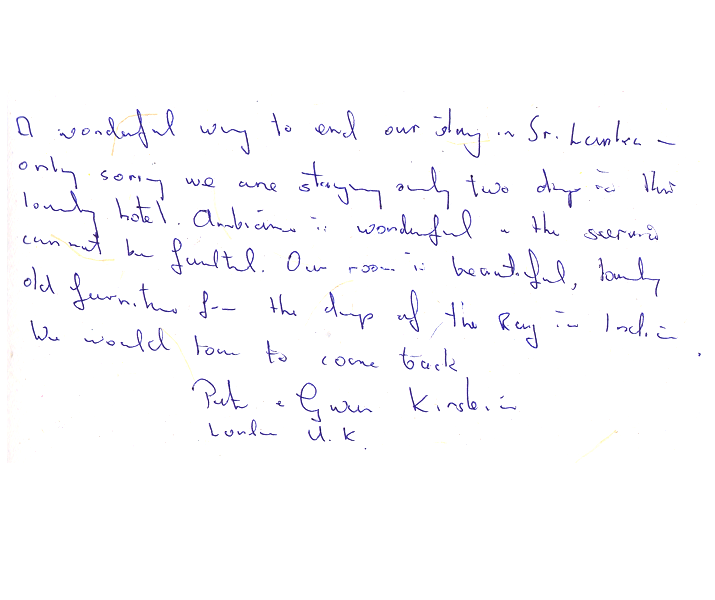 A wonderful way to end our stay in Sri Lanka -
only sorry we are staying only two days in this
lovely hotel. Ambiance is wonderful & the service
cannot be faulted. Our room is beautiful, lovely
old furniture from the days of the Raj in India.
We would love to come back
Peter & Gwen
London U.K.